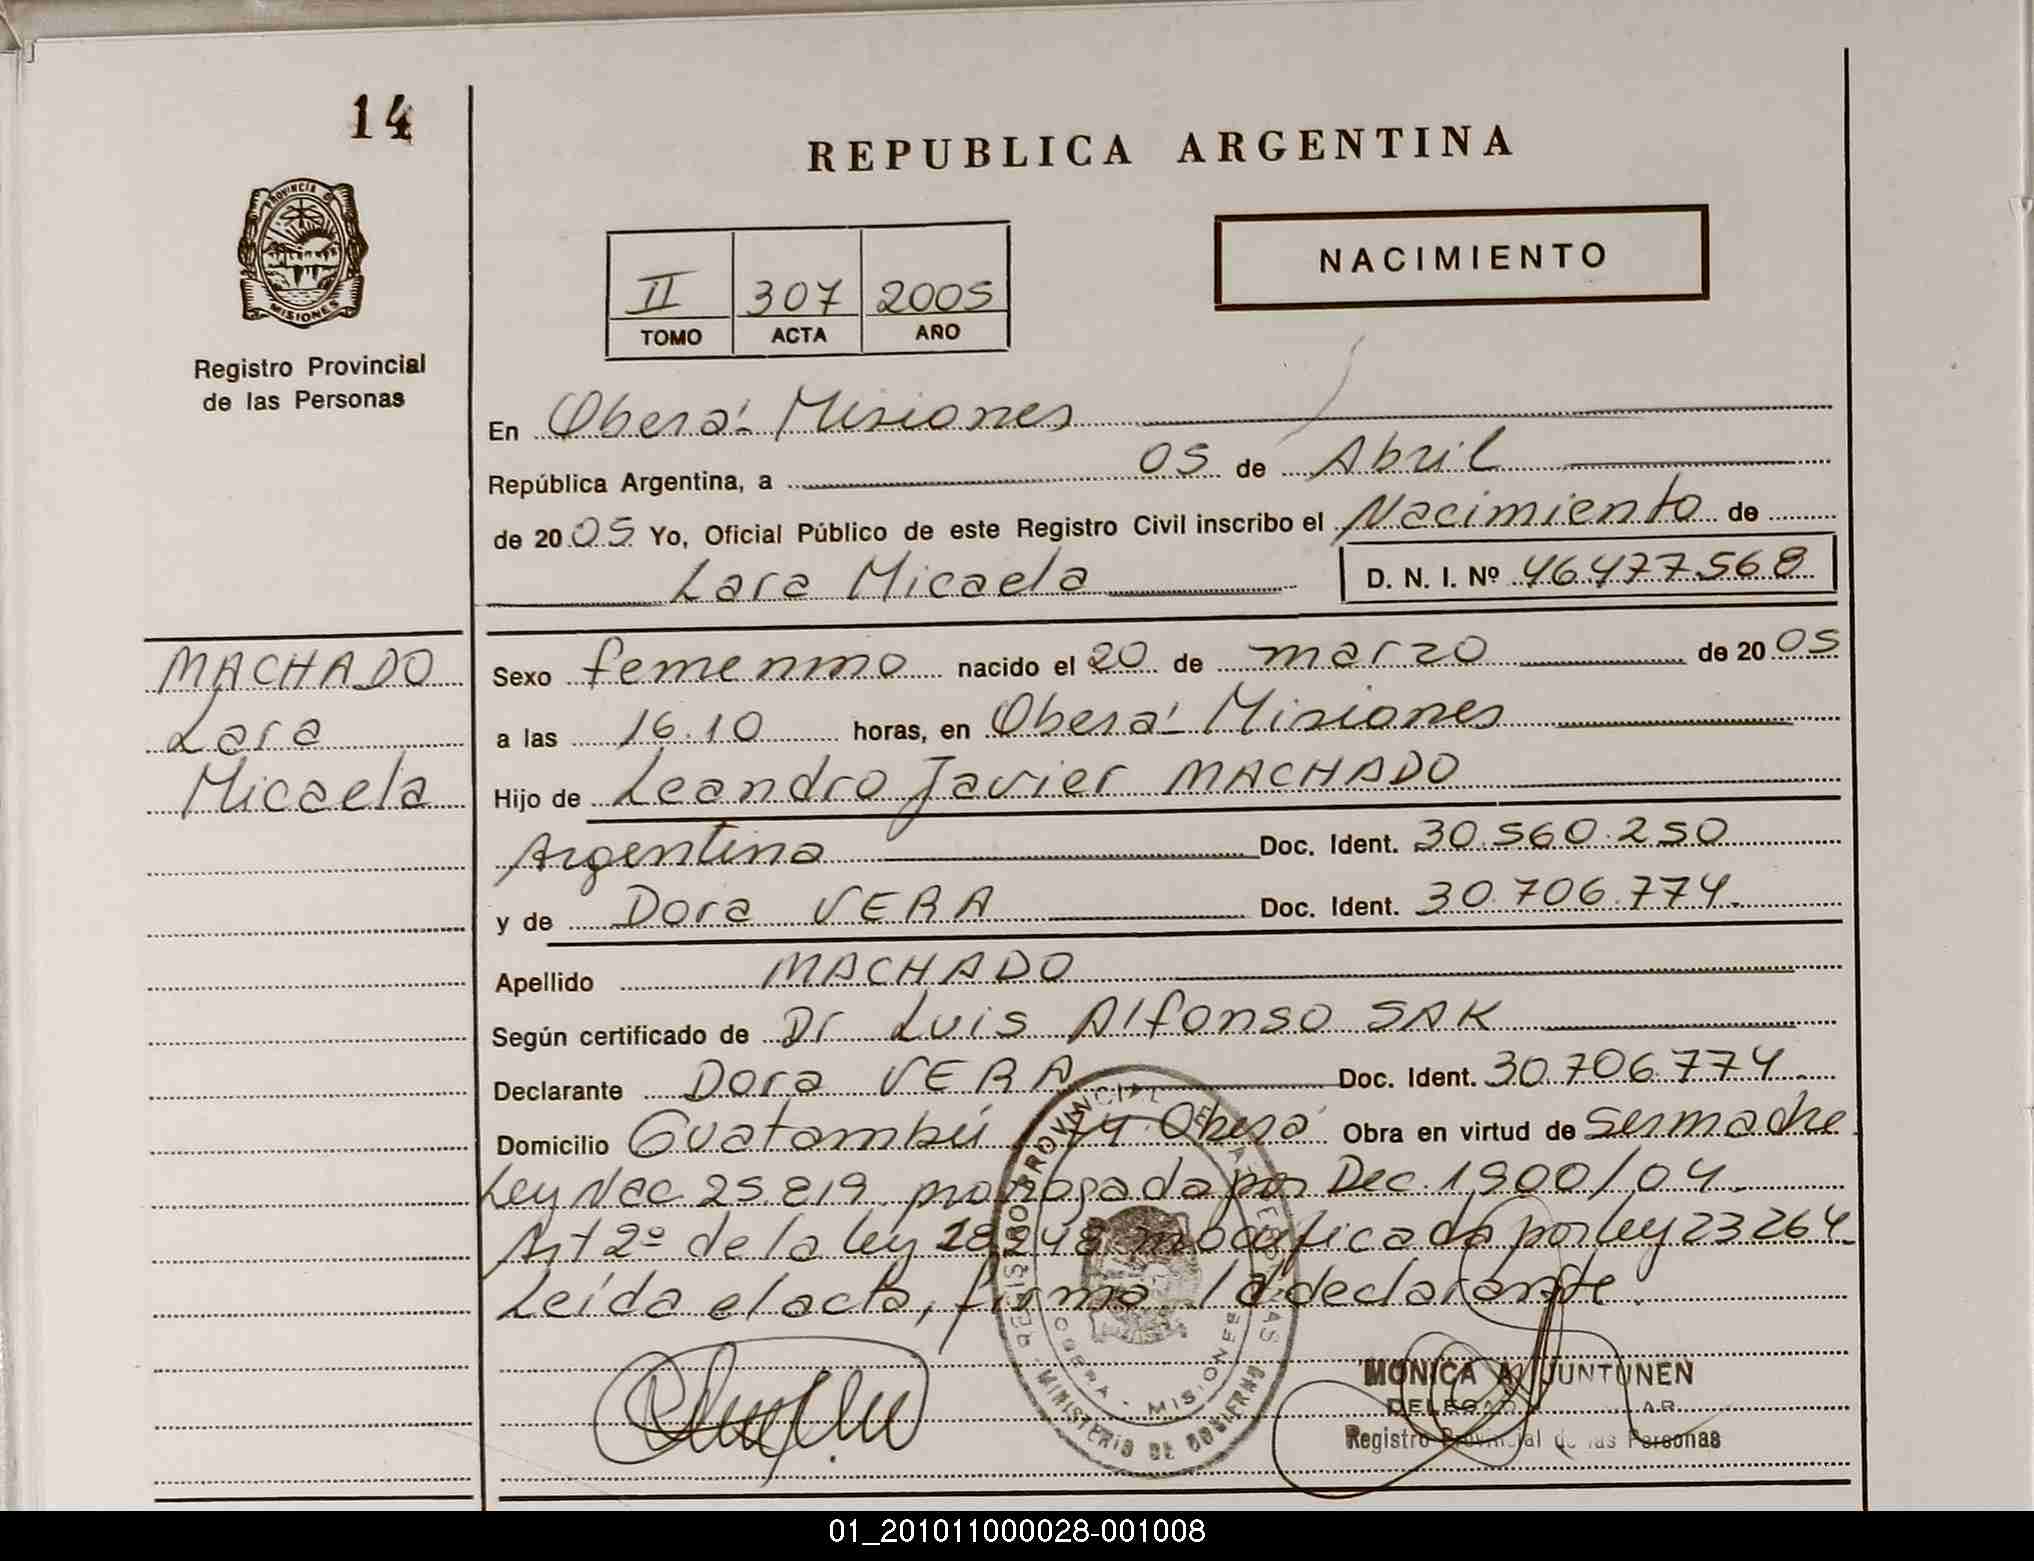 14
REPUBLICA ARGENTINA
PROVINCIA DE
MISIONES
Registro Provincial
de las Personas
NACIMIENTO
II 307 2005
TOMO ACTA AÑO
En Oberá - Misiones
República Argentina, a 05 de Abril
de 2005 Yo, Oficial Público de este Registro Civil inscribo el Nacimiento de
Lara Micaela D. N. I. Nº 46.477.568
MACHADO
Lara
Micaela
Sexo femenino nacido el 20 de marzo de 2005
a las 16.10 horas, en Oberá - Misiones
Hijo de Leandro Javier MACHADO
Argentina Doc. Ident. 30.560.250
y de Dora VERA Doc. Ident. 30.706.774.
Apellido MACHADO
Según certificado de Dr Luis Alfonso SAK
Declarante Dora VERA Doc. Ident. 30.706.774.
Domicilio Guatambú 74 Oberá Obra en virtud de Ser madre
Ley Nac 25.819 prorrogada por Dec. 1900/04.
Art 2º de la ley 18.248 modificada por ley 23264.
Leída el acta, firma la declarante.
REGISTRO PROVINCIAL DE LAS PERSONAS
OBERA - MISIONES
MINISTERIO DE GOBIERNO
MONICA A. JUNTUNEN
Registro Provincial de las Personas
01_201011000028-001008